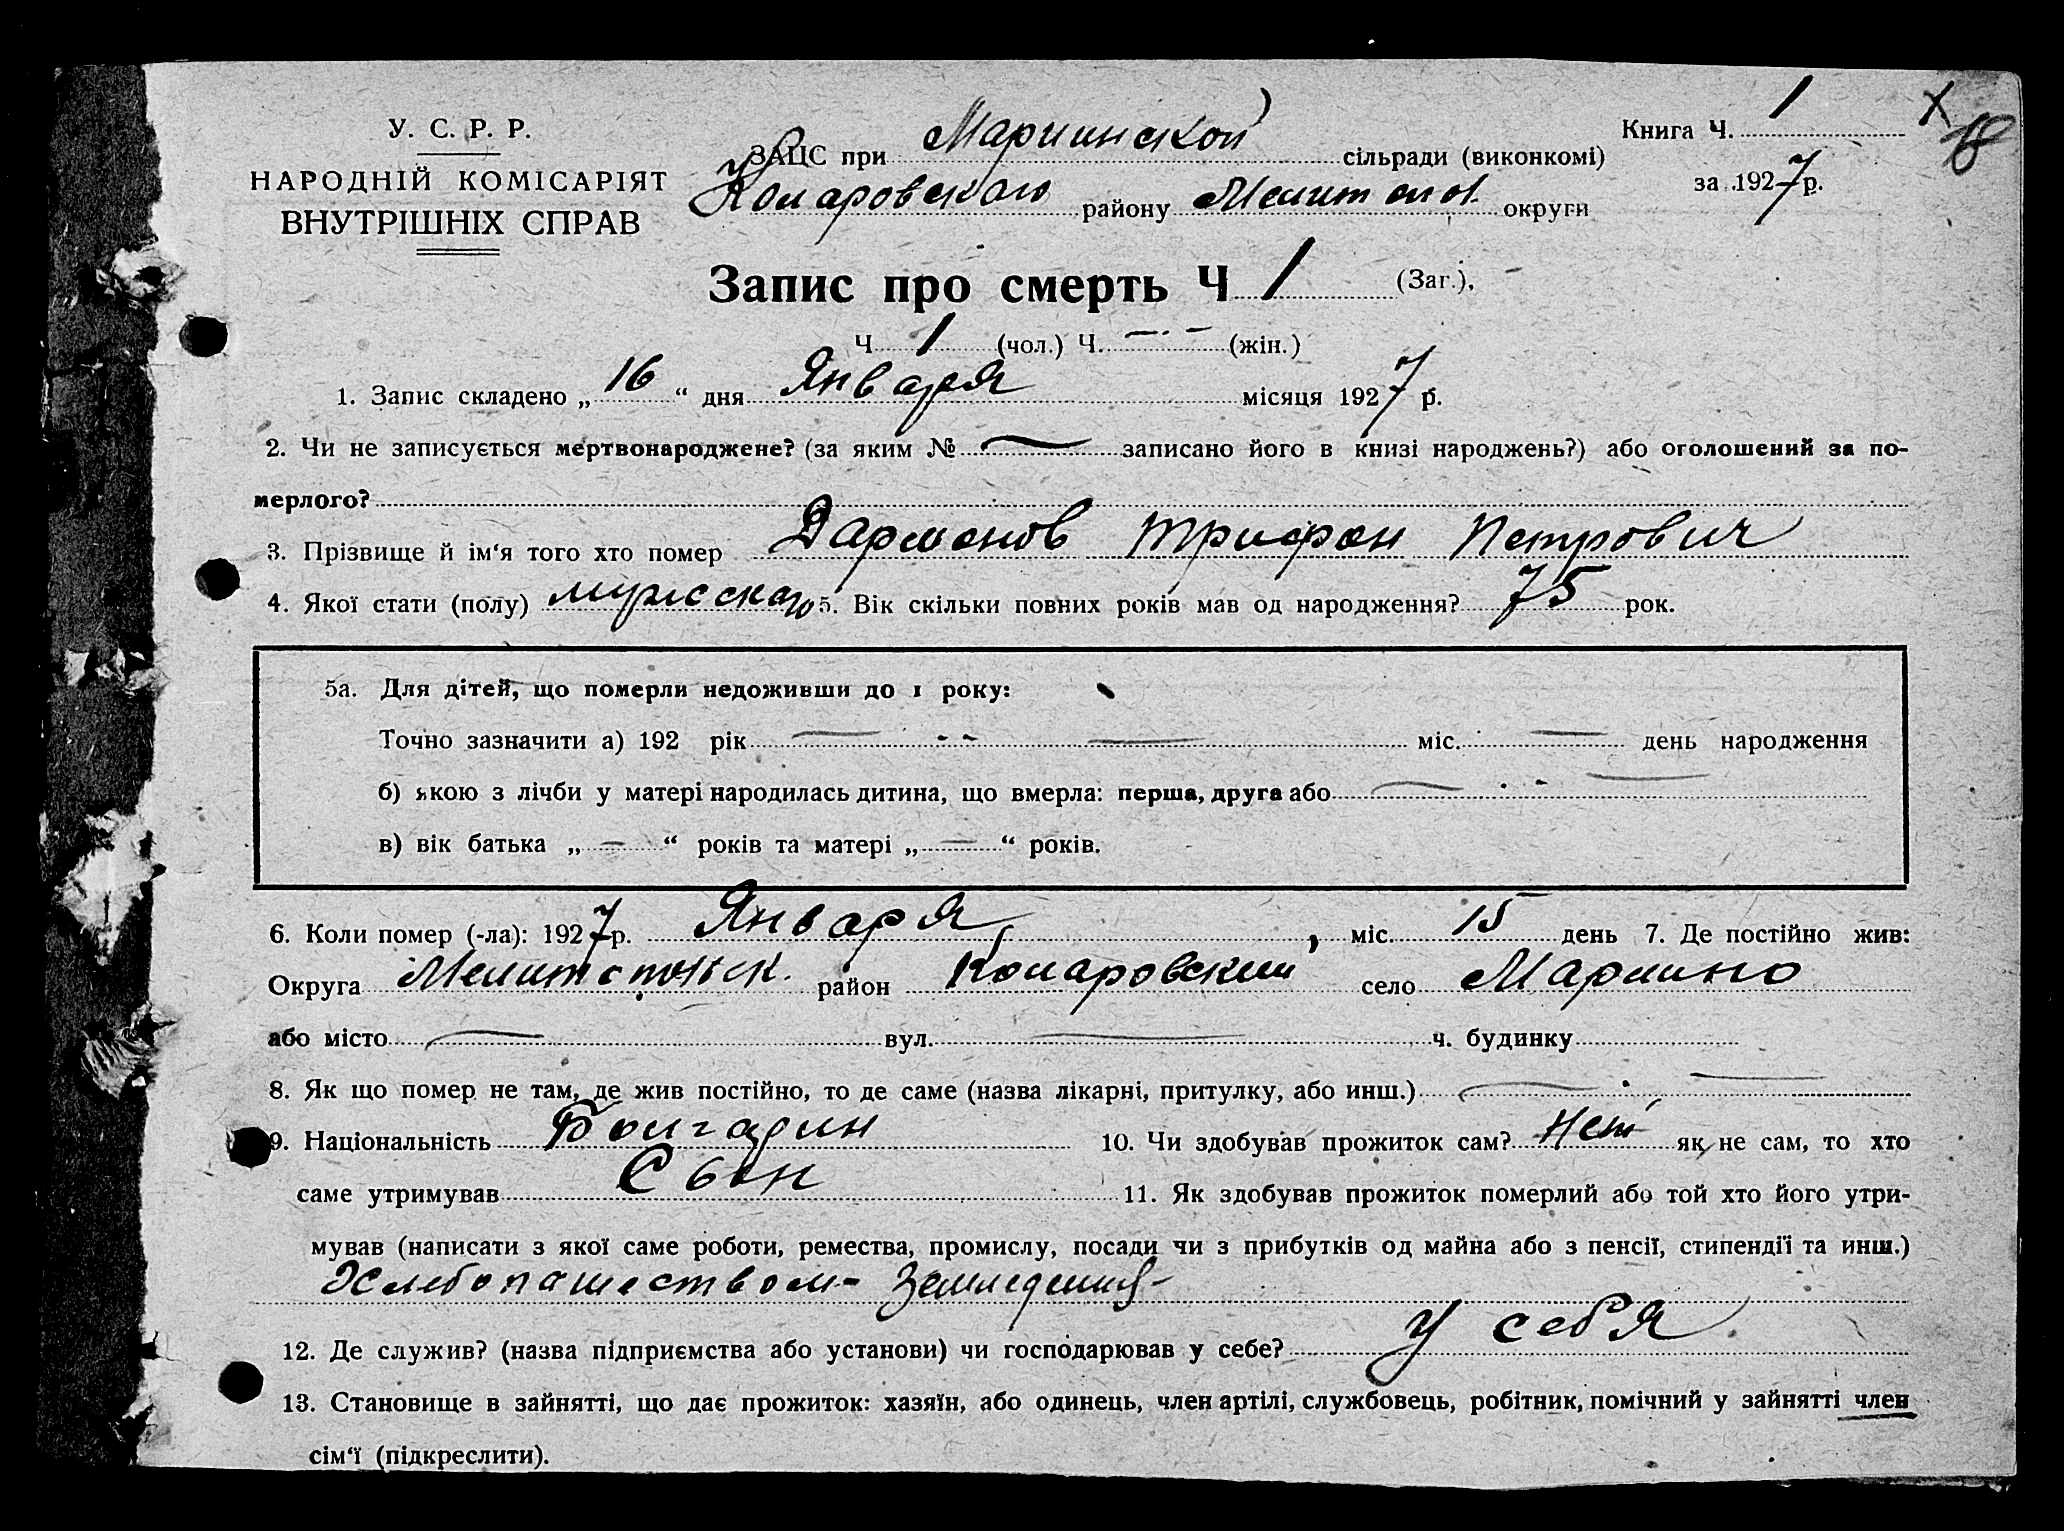 У. С. Р. Р.
НАРОДНІЙ КОМІСАРІЯТ
ВНУТРІШНІХ СПРАВ
ЗАЦС при Мариинской сільради (виконкомі)
Комаровского району Мелитоп. округи
Книга Ч. 1
за 1927 р.
Запис про смерть Ч 1 (Заг.),
Ч 1 (чол.) Ч. — (жін.)
1. Запис складено „ 16 “ дня Января місяця 1927 р.
2. Чи не записується мертвонароджене? (за яким № — записано його в книзі народжень?) або оголошений за по-
мерлого?
3. Прізвище й ім‘я того хто помер Дарманов Трифон Петрович
4. Якої стати (полу) мужскаго 5. Вік скільки повних років мав од народження? 75 рок.
5а. Для дітей, що померли недоживши до 1 року:
Точно зазначити а) 192 рік — міс. — день народження
б) якою з лічби у матері народилась дитина, що вмерла: перша, друга або —
в) вік батька „ — “ років та матері „ — “ років.
6. Коли помер (-ла): 1927 р. Января, міс. 15 день 7. Де постійно жив:
Округа Мелитопольск. район Комаровский село Марино
або місто — вул. — ч. будинку
8. Як що помер не там, де жив постійно, то де саме (назва лікарні, притулку, або инш.) —
9. Національність Болгарин 10. Чи здобував прожиток сам? Нет як не сам, то хто
саме утримував Сын 11. Як здобував прожиток померлий або той хто його утри-
мував (написати з якої саме роботи, ремества, промислу, посади чи з прибутків од майна або з пенсії, стипендії та инш.)
Хлебопашеством-
12. Де служив? (назва підприємства або установи) чи господарював у себе? У себя
13. Становище в зайнятті, що дає прожиток: хазяїн, або одинець, член артілі, службовець, робітник, помічний у зайнятті член
сім‘ї (підкреслити).